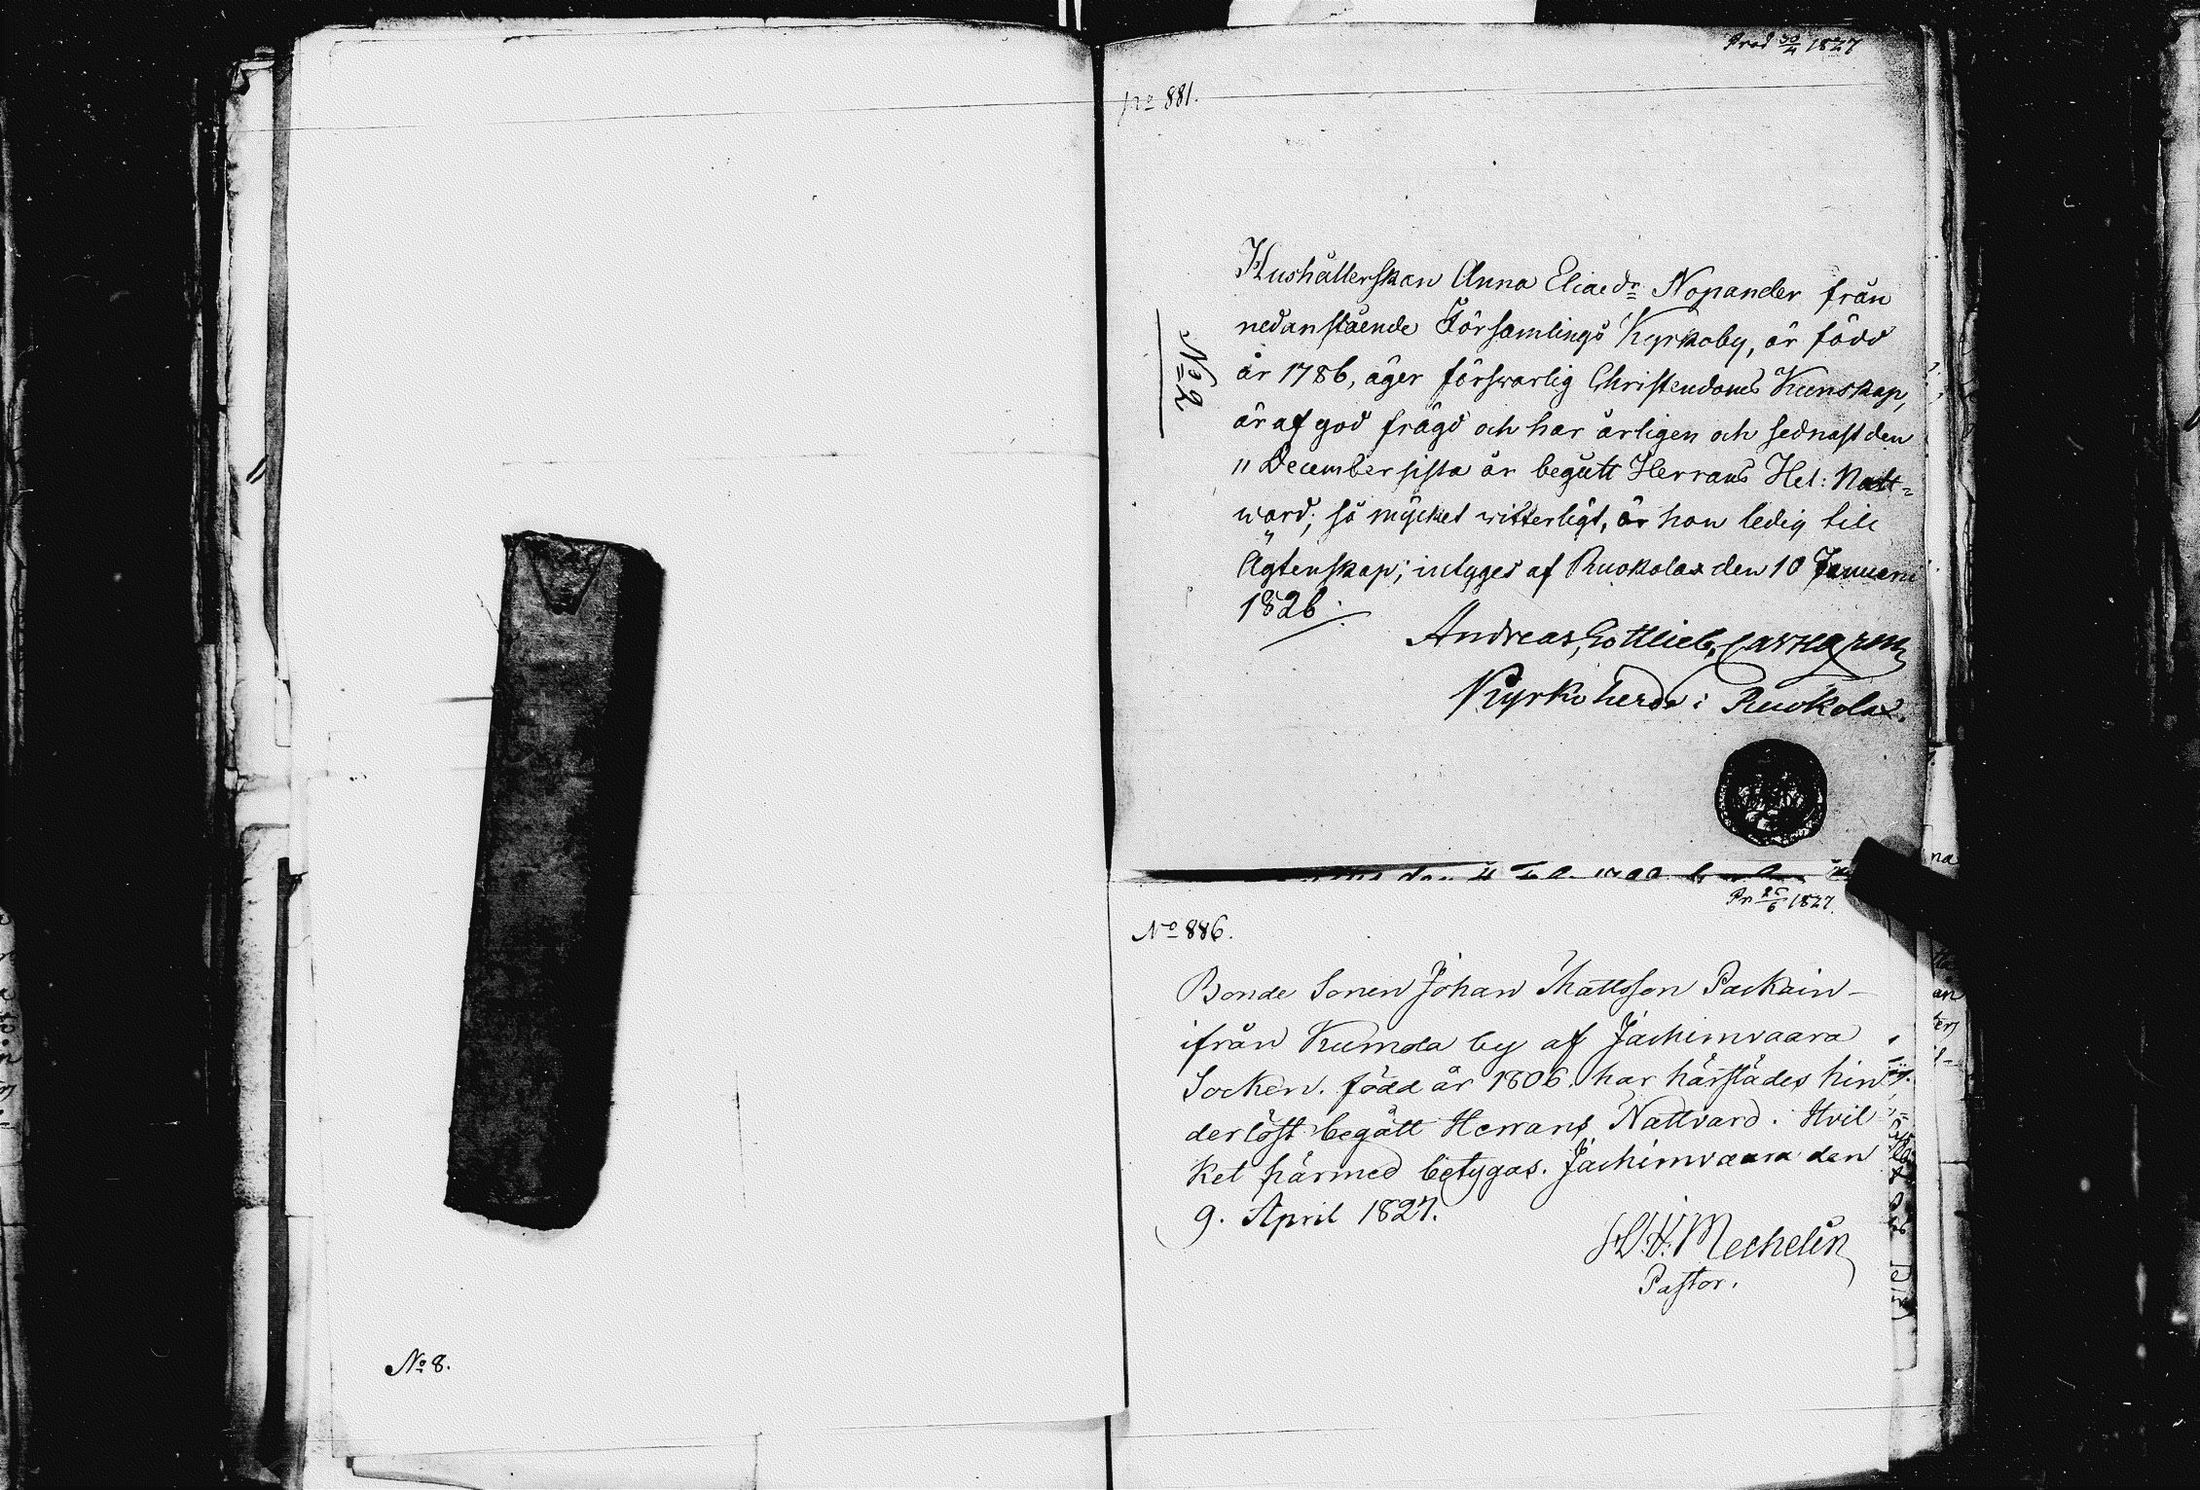 Prod 30/4 1827
No 881.
No 2
Hushållerskan Anna Eliaedr Nopander från
nedanstående Församlings Kyrkoby, är född
år 1786, äger förswarlig Christendoms Kunskap,
är af god frägd och har årligen och sednast den
11 December sista år begått Herrans Hel: Natt=
ward; så mycket witterligt, är hon ledig till
Ägtenskap; intyges af Ruokolax den 10 Januari
1826.
Andreas, Gottlieb,
Kyrkoherde i Ruokolax.
Pr 25/6 1827.
No 886.
Bonde Sonen Johan Mattsson Packain-
ifrån Kumola by af Jachimvaara
Socken. född år 1806. har härstädes hin
derlöst begått Herrans Nattvard. Hvil
ket härmed betygas. Jachimvaara den
9. April 1827.
Mechelin
Pastor.
No 8.